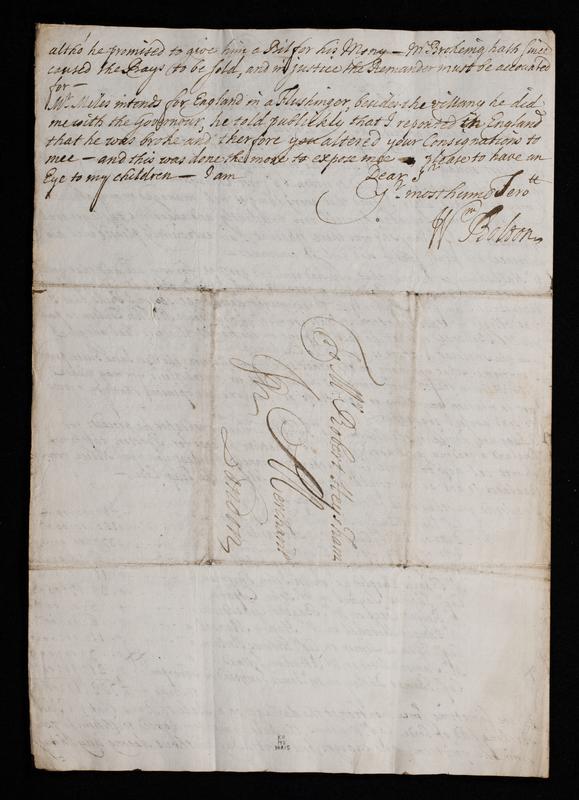 altho he promised to give him a Bil for his Mony — Mr Brokeing hath since
caused the Bays to be sold, and in justice the Remander must be accounted
for —
Mr Miles intends for England in a Flushinger, besides the villany he did
me with the Governour, he told publiklie that I reported in England
that he was broke and therfore you altered your Consignations to
mee — and this was done the more to expose me — Please to have an
Eye to my children — I am
Dear Sr
Yr most humb Servtt
Wm Bolton
To
Mr Robert Heysham
Mercht
In
London